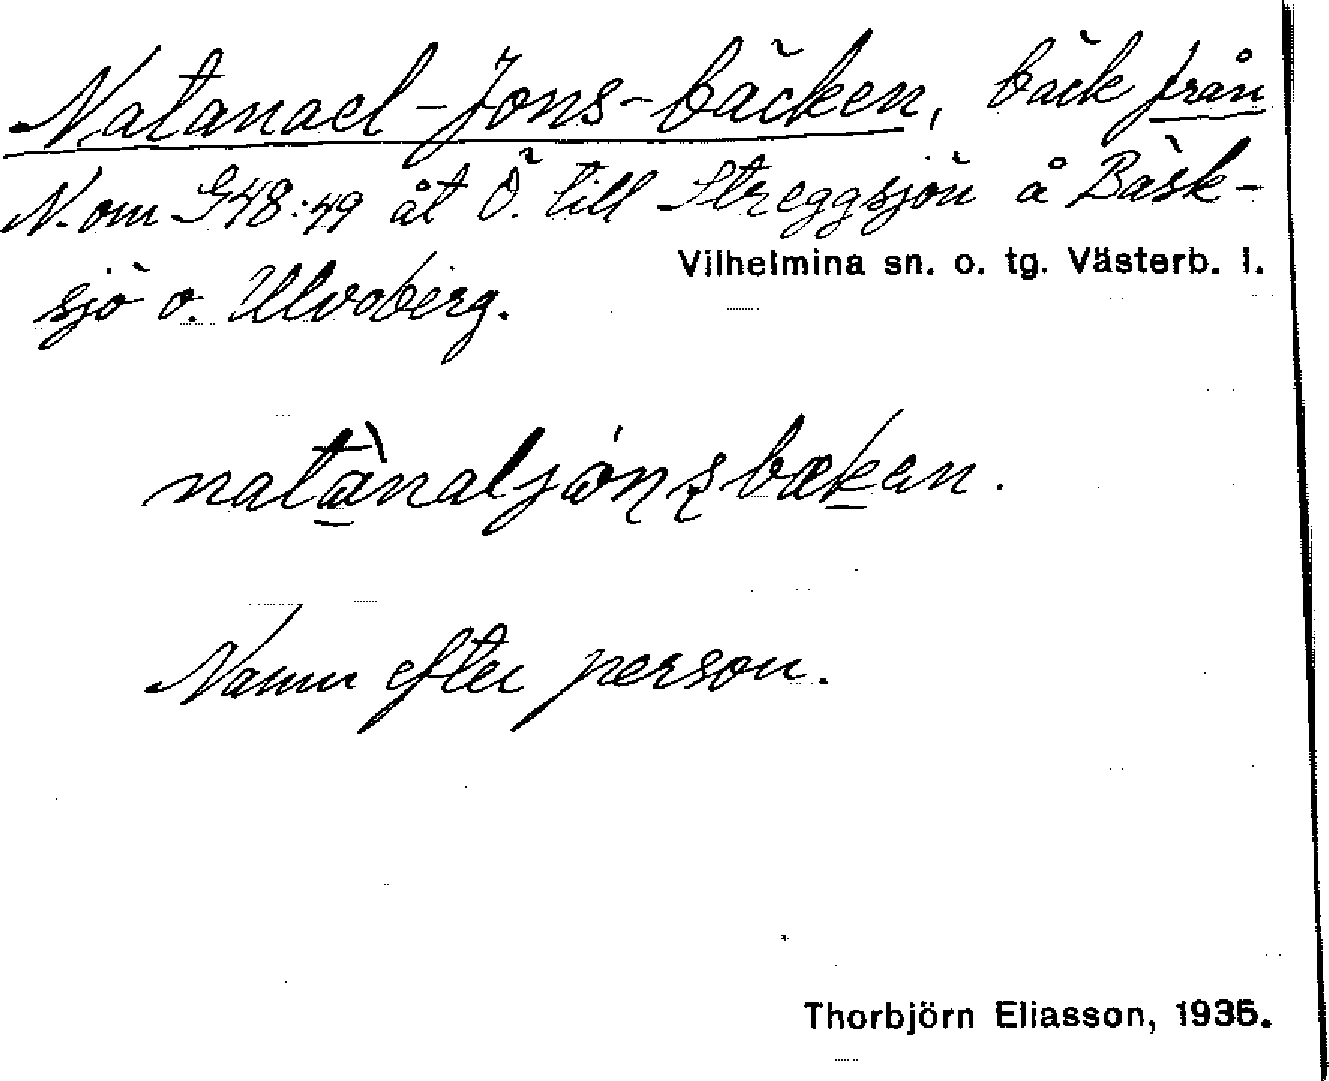 Natanael-Jons-bäcken, bäck från
N. om G48:49 åt Ö. till Streggsjön å Bäsk-
Vilhelmina sn. o. tg. Västerb. l.
sjö o. Ulvoberg.
natànaljónsbækan.
Namn efter person.
Thorbjörn Eliasson, 1935.